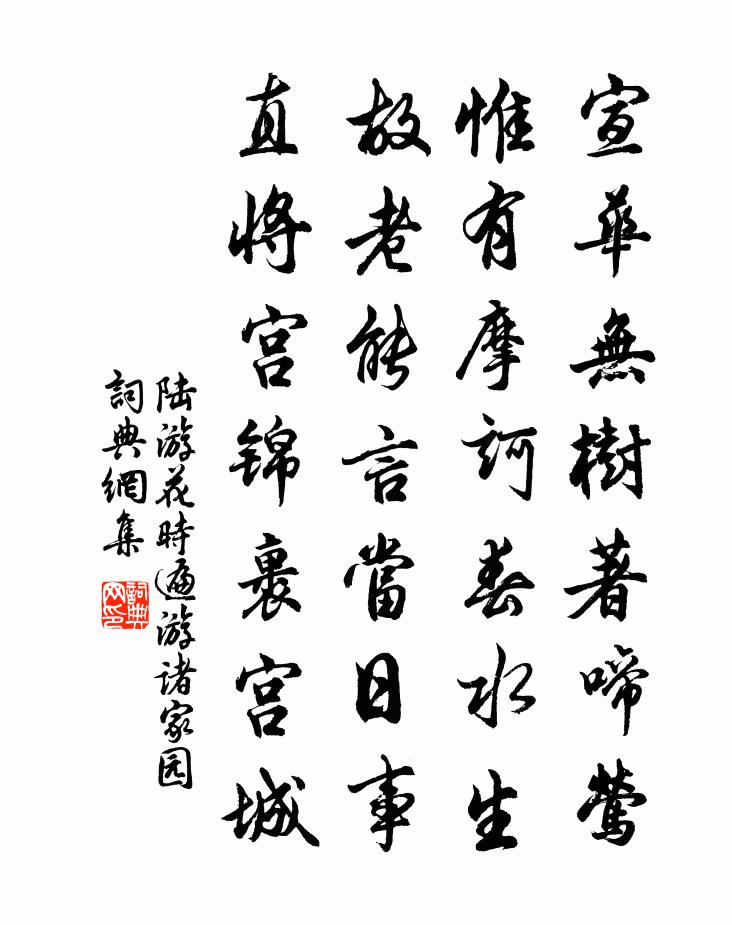 宣華無樹著啼鶯
惟有摩訶春水生
故老能言當日事
直將宫锦裹宫城
陆游花時遍游诸家园
詞典網集
詞典网印